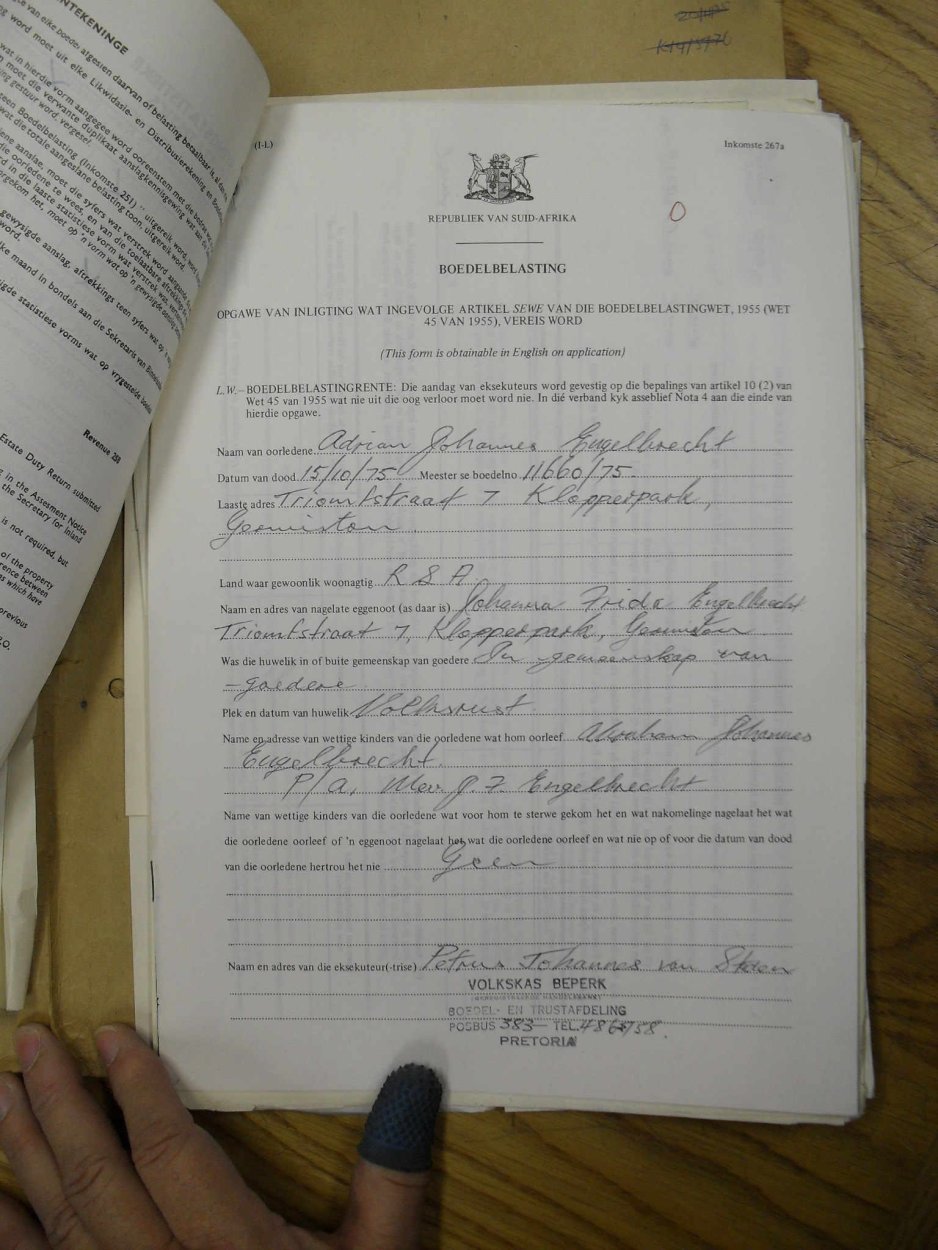 NTEKENINGE
gte van elke boedel afgesien daarvan of belasting betaalbaar is, al dan
word moet uit elke Likwidasie- en Distribusierekening en Boedel
wat in hierdie vorm aangegee word ooreenstem met die bedrae wat
n moet die verwante duplikaat aanslagkennisgewing wat aan die
ing gestuur word, vergesel
teen Boedelbelasting (Inkomste 251)" uitgereik word, moet
wat die totale aangeslane belasting toon, uitgereik word.
ene aanslag, moet die syfers wat verstrek word aangaande
die oorledene te wees, en van die toelaatbare aftrekkings
rd in die laaste statistiese vorm wat verstrek was, vermeld
rgekom het, moet op 'n vorm wat op 'n gewysigde aanslag
gewysigde aanslag, aftrekkings teen syfers wat op
word.
ke maand in bondels aan die Sekretaris van Binnelandse
igde statistiese vorms wat op vrygestelde boedels
Revenue 258
Estate Duty Return submitted
g in the Assesment Notice
the Secretary for Inland
is not required, but
of the property
rence between
ns which have
previous
P.O.
20/1/75
K14/5/76
(I-L)
Inkomste 267a
REPUBLIEK VAN SUID-AFRIKA
O
BOEDELBELASTING
OPGAWE VAN INLIGTING WAT INGEVOLGE ARTIKEL SEWE VAN DIE BOEDELBELASTINGWET, 1955 (WET
45 VAN 1955), VEREIS WORD
(This form is obtainable in English on application)
L.W.–BOEDELBELASTINGRENTE: Die aandag van eksekuteurs word gevestig op die bepalings van artikel 10 (2) van
Wet 45 van 1955 wat nie uit die oog verloor moet word nie. In dié verband kyk asseblief Nota 4 aan die einde van
hierdie opgawe.
Naam van oorledene Adrian Johannes Engelbrecht
Datum van dood 15/10/75 Meester se boedelno 11660/75
Laaste adres Triomfstraat 7 Klopperpark,
Germiston.
Land waar gewoonlik woonagtig R S A
Naam en adres van nagelate eggenoot (as daar is) Johanna Frida Engelbrecht
Triomfstraat 7, Klopperpark, Germiston
Was die huwelik in of buite gemeenskap van goedere In gemeenskap van
-goedere
Plek en datum van huwelik Volksrust.
Name en adresse van wettige kinders van die oorledene wat hom oorleef Abraham Johannes
Engelbrecht.
P/a, Mev. J. F. Engelbrecht
Name van wettige kinders van die oorledene wat voor hom te sterwe gekom het en wat nakomelinge nagelaat het wat
die oorledene oorleef of 'n eggenoot nagelaat het wat die oorledene oorleef en wat nie op of voor die datum van dood
van die oorledene hertrou het nie Geen
Naam en adres van die eksekuteur(-trise) Petrus Johannes van Staden
VOLKSKAS BEPERK
(GEREGISTREERDE HANDELSBANK)
BOEDEL- EN TRUSTAFDELING
POSBUS 383 — TEL.
PRETORIA